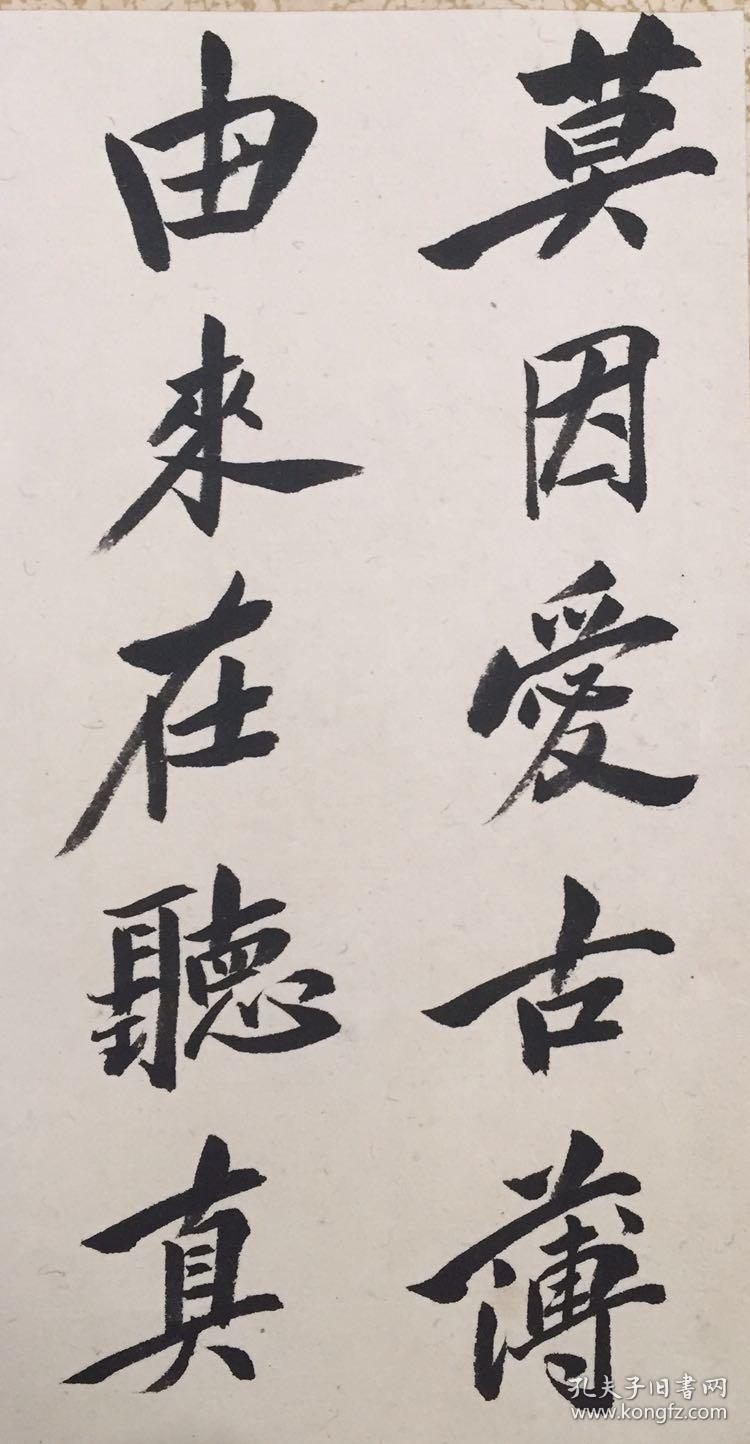 莫因愛古薄
由來在聽真
孔夫子旧書网
www.kongfz.com